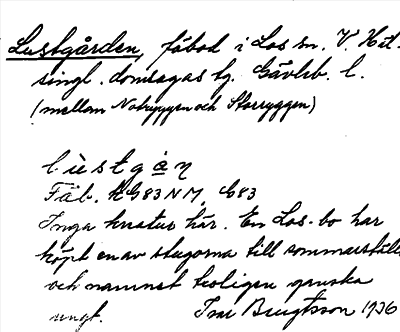 Lustgården, fäbod i Los sn. V. Häl-
singl. domsagas tg. Gävleb. l.
(mellan Noppyggen och Storryggen)
lùstgàṇ
Fäb. KG83NM, G83
Inga knutar här. En Los-bo har
köpt en av stugorna till sommarställe
och namnet troligen ganska
ungt. Ivar Bengtsson 1936